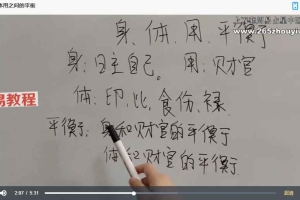 本用之间的平衡
身、体、用、平衡
www.265zhouyi
身：日主自己。用：财官
易教程
体：印、比、食伤、禄
平衡：身和财官的平衡
体和财官的平衡
2:07 / 5:31